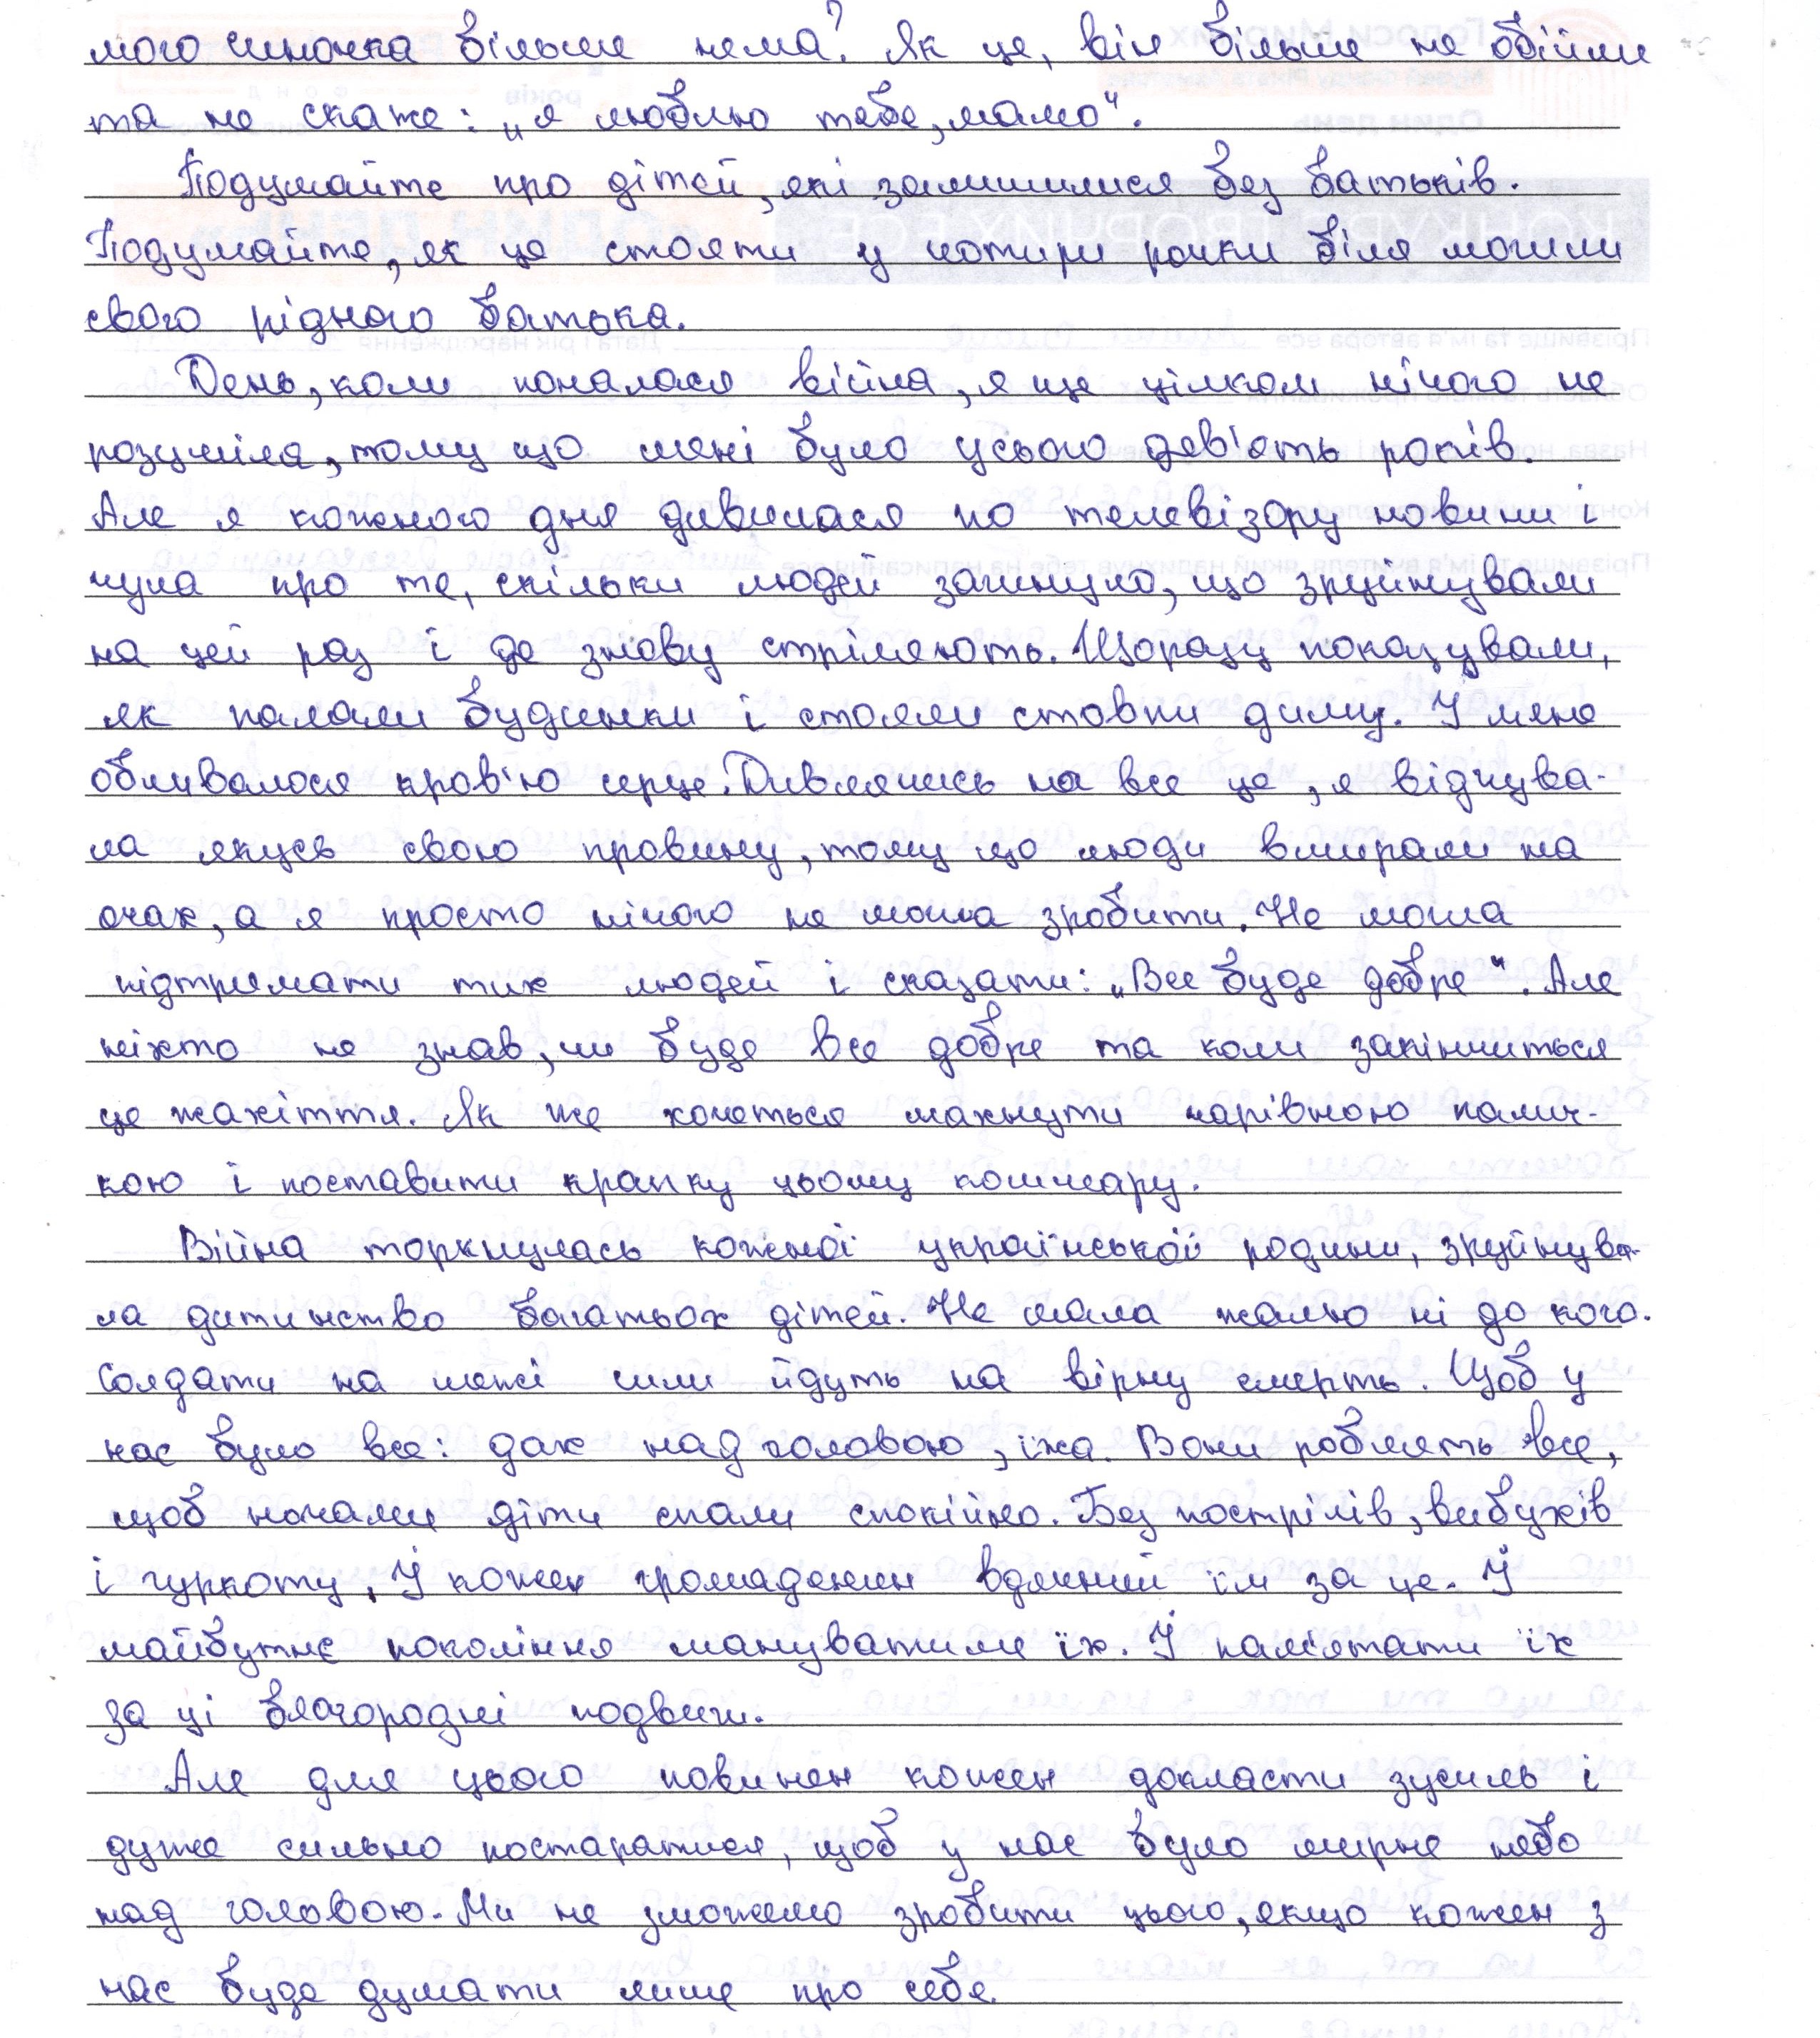 мого синочка більше нема? Як це, він більше не обійми
та не скаже: „я люблю тебе, мамо".
Подумайте про дітей, які залишилися без батьків.
Подумайте, як це стояти у чотири рочки біля могили
свого рідного батька.
День, коли почалася війна, я ще цілком нічого не
розуміла, тому що мені було усього дев'ять років.
Але я кожного дня дивилася по телевізору новини і
чула про те, скільки людей загинуло, що зруйнували
на цей раз і де знову стріляють. Щоразу показували,
як палали будинки і стояли стовпи диму. У мене
обливалося кров'ю серце. Дивлячись на все це, я відчува-
ла якусь свою провину, тому що люди вмирали на
очах, а я просто нічого не могла зробити. Не могла
підтримати тих людей і сказати: „Все буде добре". Але
ніхто не знав, чи буде все добре та коли закінчиться
це жахіття. Як же хочеться махнути чарівною палич-
кою і поставити крапку цьому кошмару.
Війна торкнулась кожної української родини, зруйнува-
ла дитинство багатьох дітей. Не мала жалю ні до кого.
Солдати на межі сили йдуть на вірну смерть. Щоб у
нас було все: дах над головою, їжа. Вони роблять все,
щоб ночами діти спали спокійно. Без пострілів, вибухів
і гуркоту. І кожен громадянин вдячний їм за це. І
майбутнє покоління шануватиме їх. І пам'ятати їх
за ці благородні подвиги.
Але для цього повинен кожен докласти зусиль і
дуже сильно постаратися, щоб у нас було мирне небо
над головою. Ми не зможемо зробити цього, якщо кожен з
нас буде думати лише про себе.